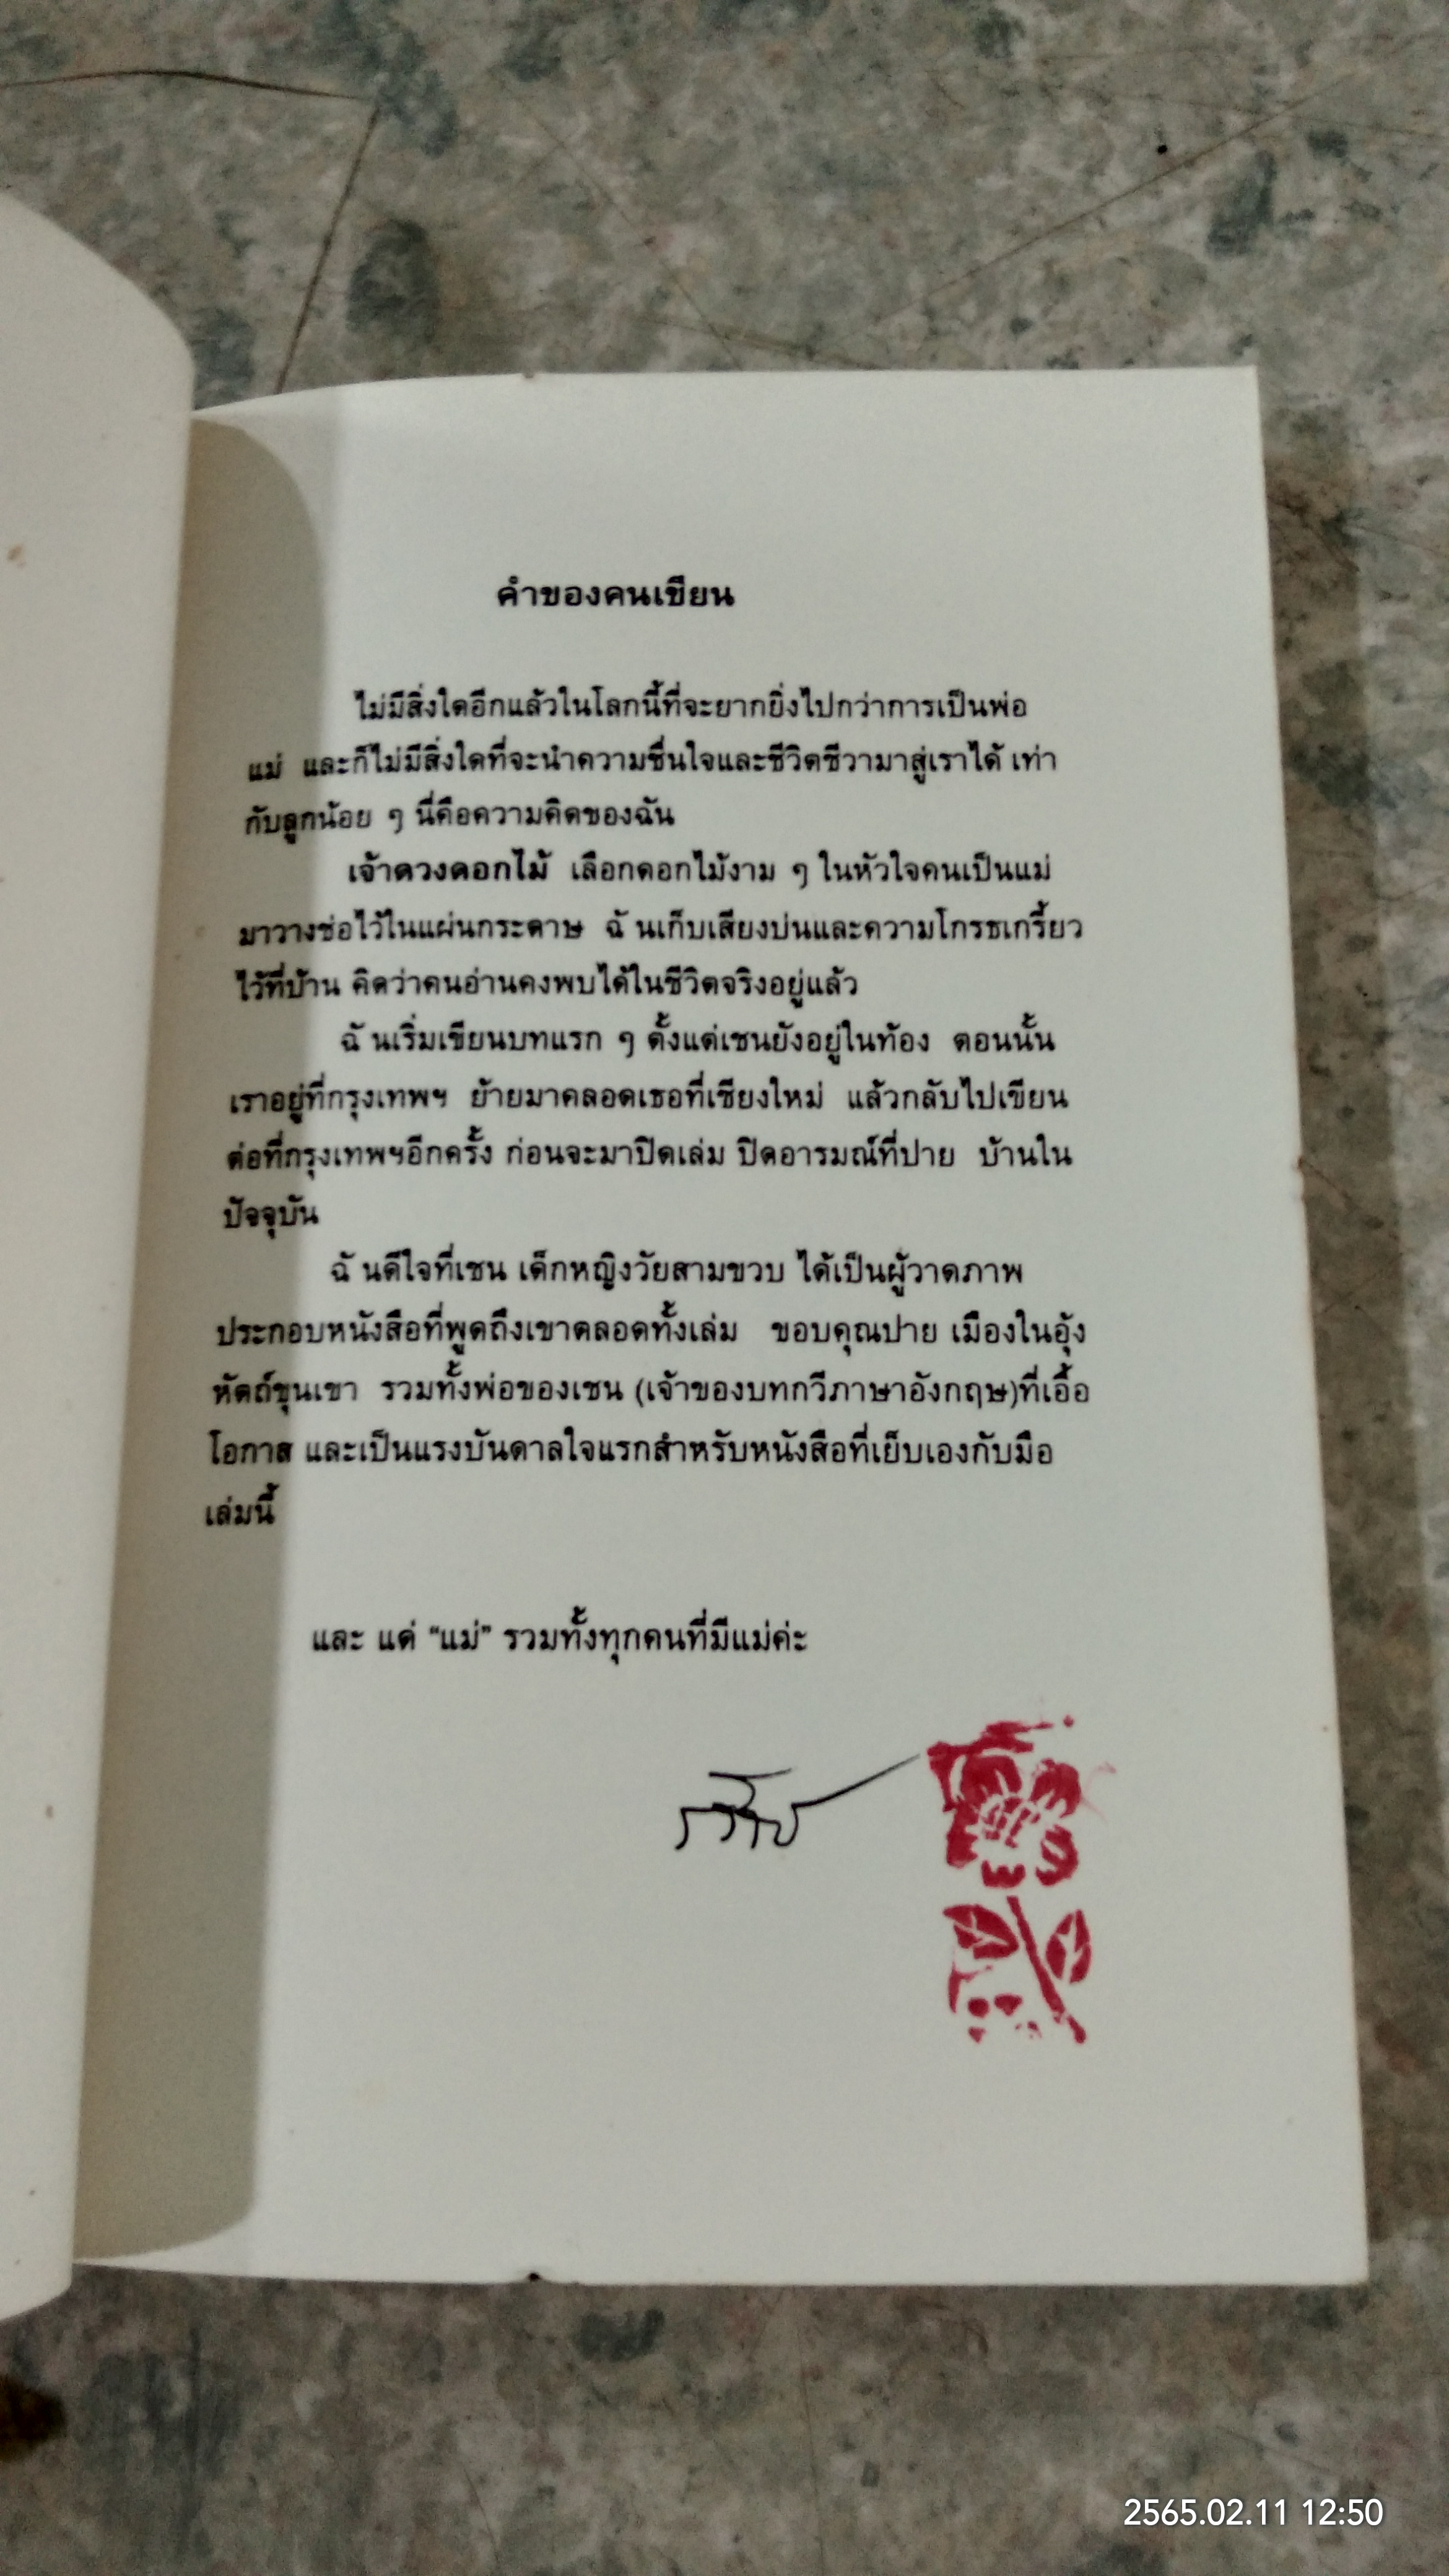 คำของคนเขียน
ไม่มีสิ่งใดอีกแล้วในโลกนี้ที่จะยากยิ่งไปกว่าการเป็นพ่อ
แม่ และก็ไม่มีสิ่งใดที่จะนำความชื่นใจและชีวิตชีวามาสู่เราได้ เท่า
กับลูกน้อย ๆ นี่คือความคิดของฉัน
เจ้าดวงดอกไม้ เลือกดอกไม้งาม ๆ ในหัวใจคนเป็นแม่
มาวางช่อไว้ในแผ่นกระดาษ ฉันเก็บเสียงบ่นและความโกรธเกรี้ยว
ไว้ที่บ้าน คิดว่าคนอ่านคงพบได้ในชีวิตจริงอยู่แล้ว
ฉันเริ่มเขียนบทแรก ๆ ตั้งแต่เชนยังอยู่ในท้อง ตอนนั้น
เราอยู่ที่กรุงเทพฯ ย้ายมาคลอดเธอที่เชียงใหม่ แล้วกลับไปเขียน
ต่อที่กรุงเทพฯอีกครั้ง ก่อนจะมาปิดเล่ม ปิดอารมณ์ที่ปาย บ้านใน
ปัจจุบัน
ฉันดีใจที่เชน เด็กหญิงวัยสามขวบ ได้เป็นผู้วาดภาพ
ประกอบหนังสือที่พูดถึงเขาตลอดทั้งเล่ม ขอบคุณปาย เมืองในอุ้ง
หัตถ์ขุนเขา รวมทั้งพ่อของเชน (เจ้าของบทกวีภาษาอังกฤษ)ที่เอื้อ
โอกาส และเป็นแรงบันดาลใจแรกสำหรับหนังสือที่เย็บเองกับมือ
เล่มนี้
และ แด่ “แม่” รวมทั้งทุกคนที่มีแม่ค่ะ
2565.02.11 12:50